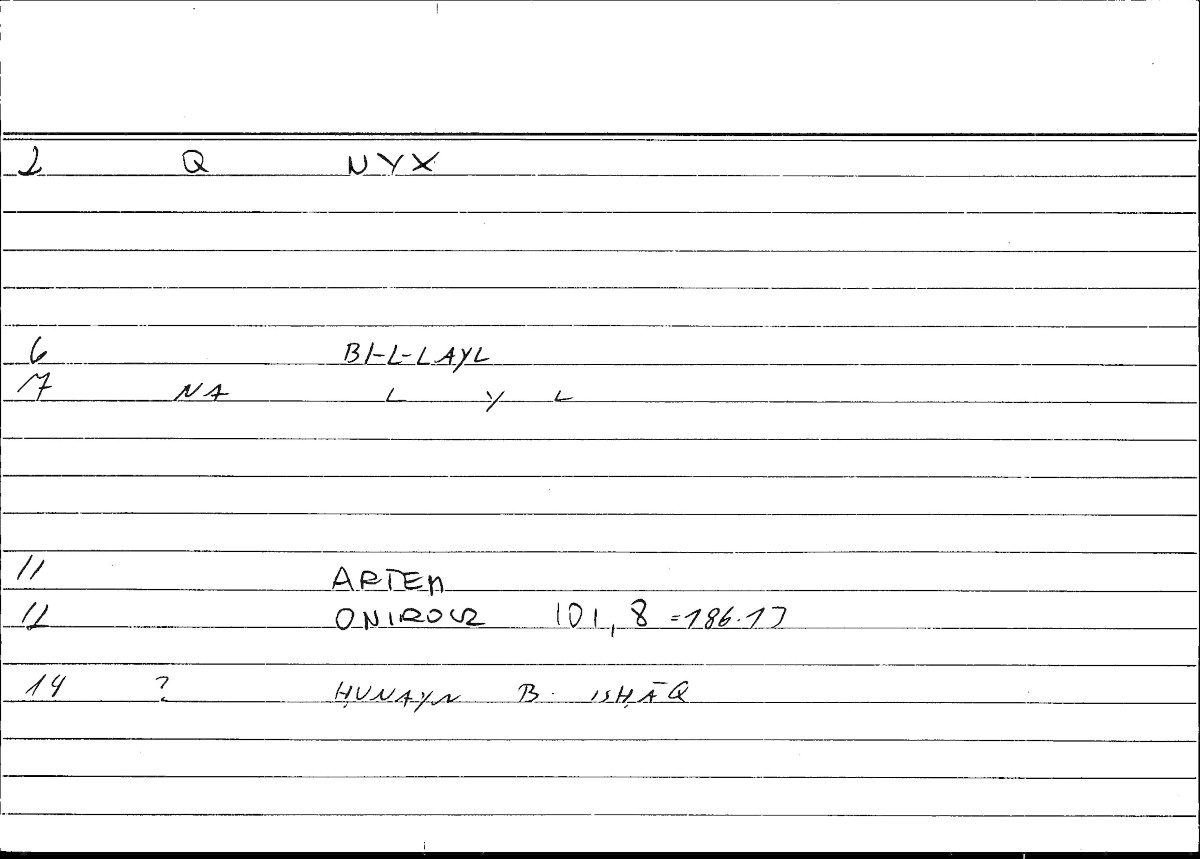 2 Q NYX
6 BI-L-LAYL
7 NA L Y L
11 ARTEM
12 ONIROCR 101,8 =186.17
14 ? ḤUNAYN B. ISḤĀQ